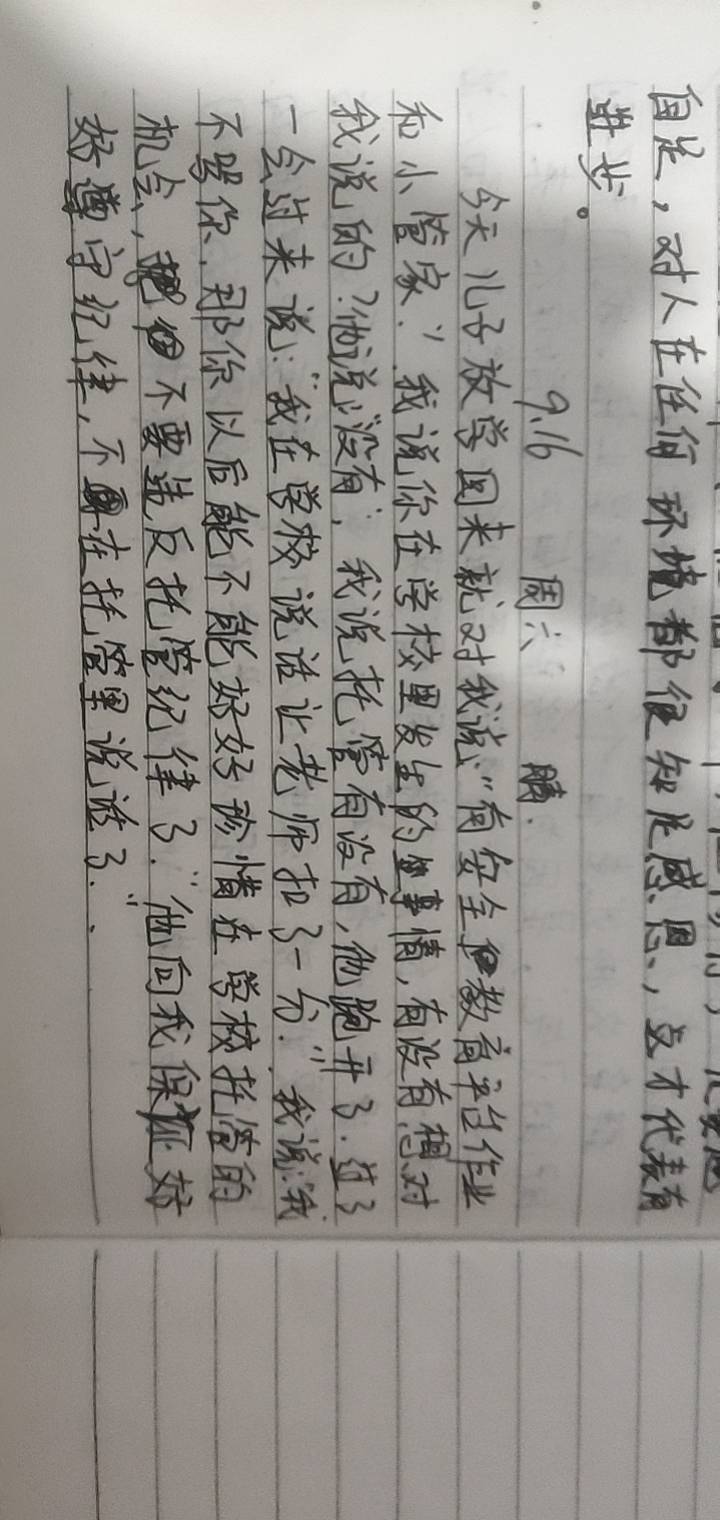 自足,对人在任何环境都很知足感恩,这才代表有
进步。
9.16 周六 晴.
今天儿子放学回来就对我说:“有安全教育平台作业
和小管家.”我说你在学校里发生的事情,有没有想对
我说的?他说:“没有”,我说托管有没有,他跑开了.过了
一会过来说:“我在学校说话让老师扣了一分.”我说:“我
不骂你,那你以后能不能好好珍惜在学校托管的
机会,不要违反托管纪律了.”他向我保证好
好遵守纪律,不要在托管里说话了.”.